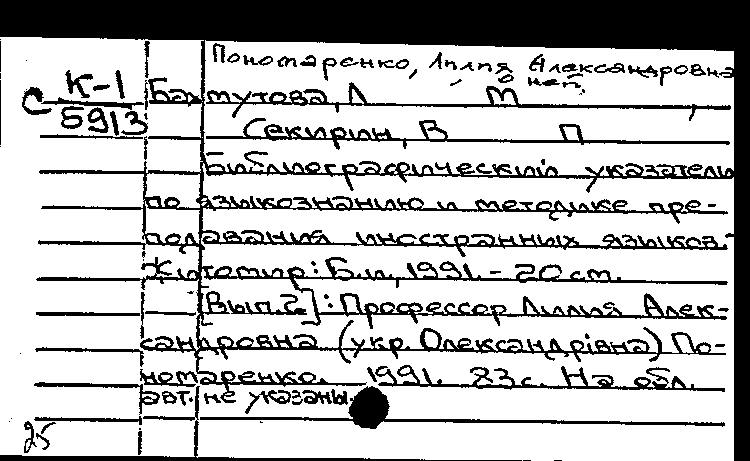 Пономаренко, Лилия Александровна
о ней.
С К-1
5913
Бахмутова, Л М ,
Секирин, В П
Библиографический указатель
по языкознанию и методике пре-
подавания иностранных языков.-
Житомир: Б.и., 1991.- 20 см.
[Вып.2]: Профессор Лилия Алек-
сандровна (укр. Олександрiвна) По-
номаренко. 1991. 23с. На обл.
авт. не указаны.
25